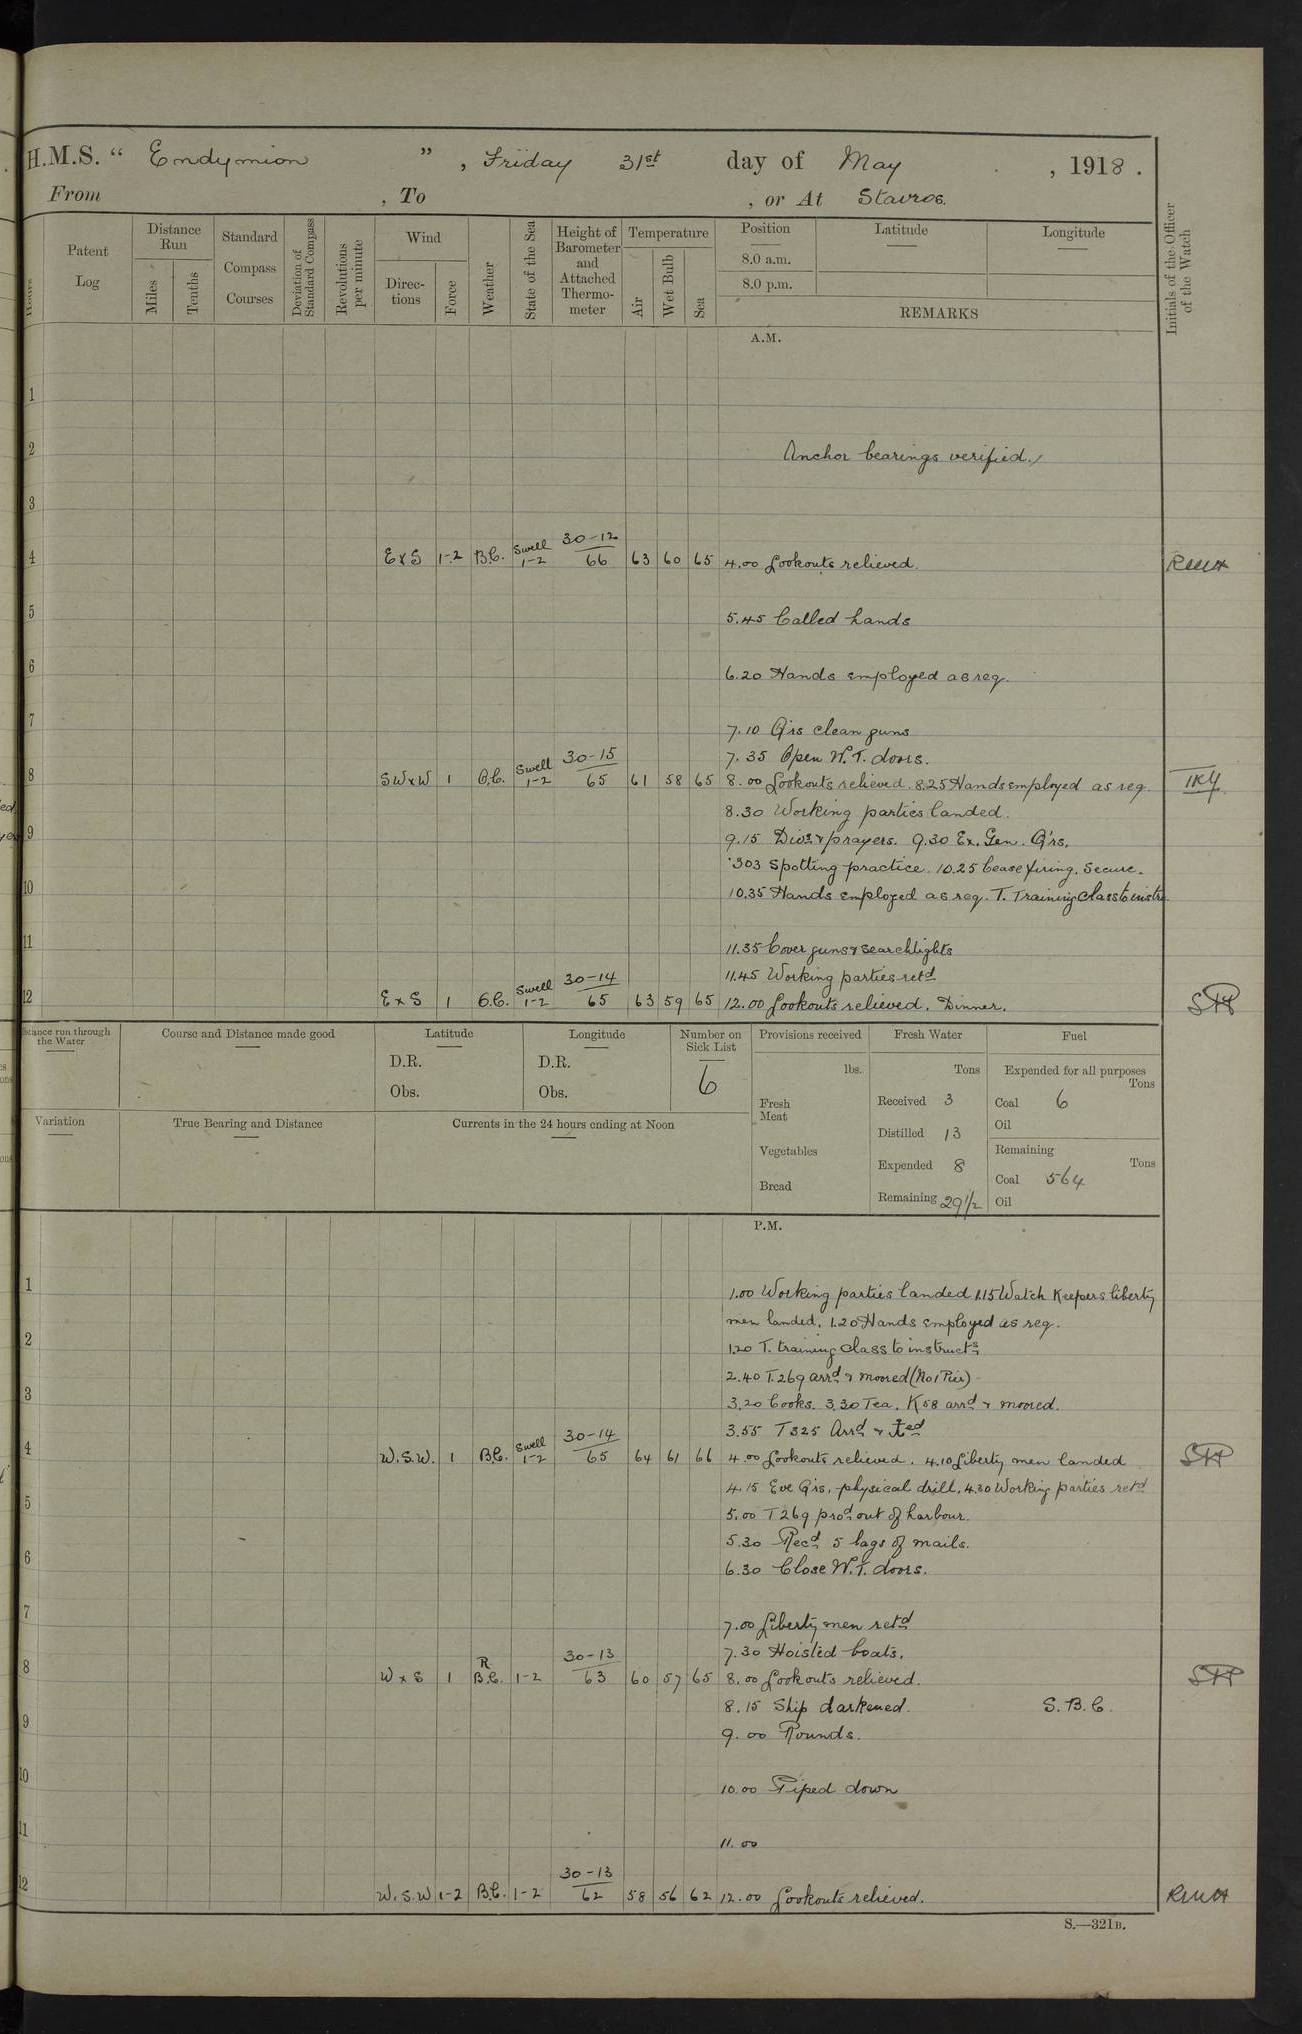 H.M.S. “ Endymion ” , Friday 31st day of May , 1918 .
From , To , or At Stavros.
Patent Log
Distance Run
Miles
Tenths
Standard Compass Courses
Deviation of Standard Compass
Revolutions per minute
Wind
Direc-tions
Force
Weather
State of the Sea
Height of Barometer and Attached Thermo-meter
Temperature
Air
Wet Bulb
Sea
Position
8.0 a.m.
8.0 p.m.
Latitude
Longitude
REMARKS
Initials of the Officer of the Watch
A.M.
1
2 Anchor bearings verified.
3
4 ExS 1-2 B.C. Swell 1-2 30-12 66 63 60 65 4.00 Lookouts relieved.
5 5.45 Called hands
6 6.20 Hands employed as req.
7 7.10 Q'rs clean guns
7.35 Open W.T. doors.
8 SWxW 1 B.C. Swell 1-2 30-15 65 61 58 65 8.00 Lookouts relieved. 8.25 Hands employed as req.
8.30 Working parties landed.
9 9.15 Divs & prayers. 9.30 Ex. Gen. Q'rs.
.303 Spotting practice. 10.25 Cease firing. Secure.
10 10.35 Hands employed as req. T. Training class to instrs.
11 11.35 Cover guns & searchlights
11.45 Working parties retd
12 ExS 1 B.C. Swell 1-2 30-14 65 63 59 65 12.00 Lookouts relieved. Dinner.
Distance run through the Water
Course and Distance made good
Latitude
D.R.
Obs.
Longitude
D.R.
Obs.
Number on Sick List
6
Provisions received
lbs.
Fresh Meat
Vegetables
Bread
Fresh Water
Tons
Received 3
Distilled 13
Expended 8
Remaining 291/2
Fuel
Expended for all purposes
Tons
Coal 6
Oil
Remaining
Tons
Coal 564
Oil
Variation
True Bearing and Distance
Currents in the 24 hours ending at Noon
P.M.
1 1.00 Working parties landed 1.15 Watch Keepers liberty
men landed. 1.20 Hands employed as req.
2 1.20 T. training class to instructs
2.40 T.269 arrd & moored (No1 Pier)
3 3.20 Cooks. 3.30 Tea. K58 arrd & moored.
3.55 T325 Arrd & ⚓ed
4 W.S.W. 1 B.C. Swell 1-2 30-14 65 64 61 66 4.00 Lookouts relieved. 4.10 Liberty men landed
4.15 Eve Q'rs, physical drill, 4.30 Working parties retd
5 5.00 T269 prod out of harbour.
5.30 Recd 5 bags of mails.
6 6.30 Close W.T. doors.
7 7.00 Liberty men retd
7.30 Hoisted boats.
8 WxS 1 R B.C. 1-2 30-13 63 60 57 65 8.00 Lookouts relieved.
8.15 Ship darkened. S.B.C.
9 9.00 Rounds.
10 10.00 Piped down
11 11.00
12 W.S.W 1-2 B.C. 1-2 30-13 62 58 56 62 12.00 Lookouts relieved.
S.—321B.